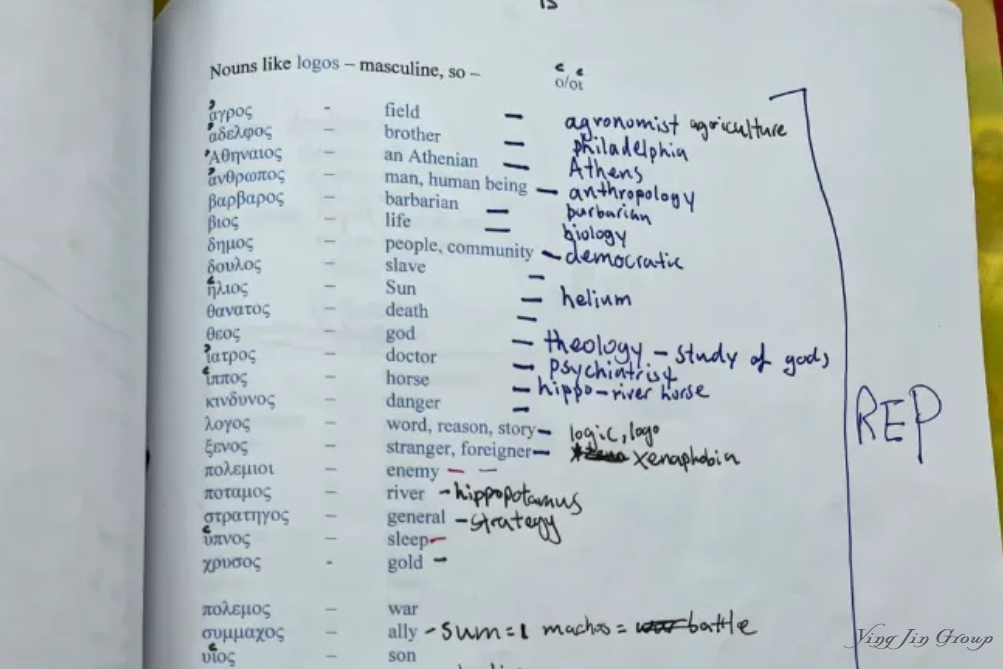 Is
Nouns like logos – masculine, so – ὁ/οἱ
ἀγρος - field – agronomist agriculture
ἀδελφος – brother – philadelphia
Ἀθηναιος – an Athenian – Athens
ἀνθρωπος – man, human being – anthropology
βαρβαρος – barbarian – burbarian
βιος – life – biology
δημος – people, community – democratic
δουλος – slave –
ἡλιος – Sun – helium
θανατος – death –
θεος – god – theology – study of gods
ἰατρος – doctor – psychiatrist
ἱππος – horse – hippo – river horse
κινδυνος – danger –
λογος – word, reason, story – logic, logo
ξενος – stranger, foreigner – xenaphobia
πολεμιοι – enemy – –
ποταμος – river – hippopotamus
στρατηγος – general – strategy
ὑπνος – sleep –
χρυσος - gold –
REP
πολεμος – war
συμμαχος – ally – sum = 1 machos = battle
υἱος – son
Ying Jin Group